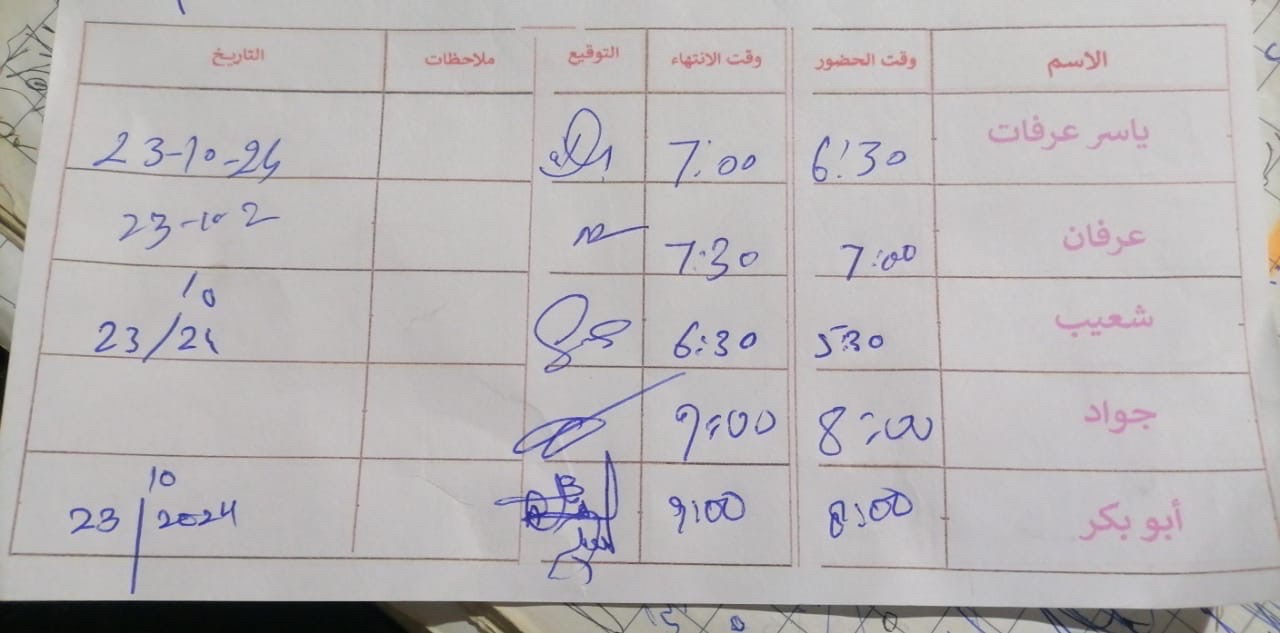 الاسم وقت الحضور وقت الانتهاء التوقيع ملاحظات التاريخ
ياسر عرفات 6:30 7:00 23-10-24
عرفان 7:00 7:30 23-10-2
شعيب 5:30 6:30 23/10/24
جواد 8:00 9:00
أبو بكر 8:00 9:00 23/10/2024